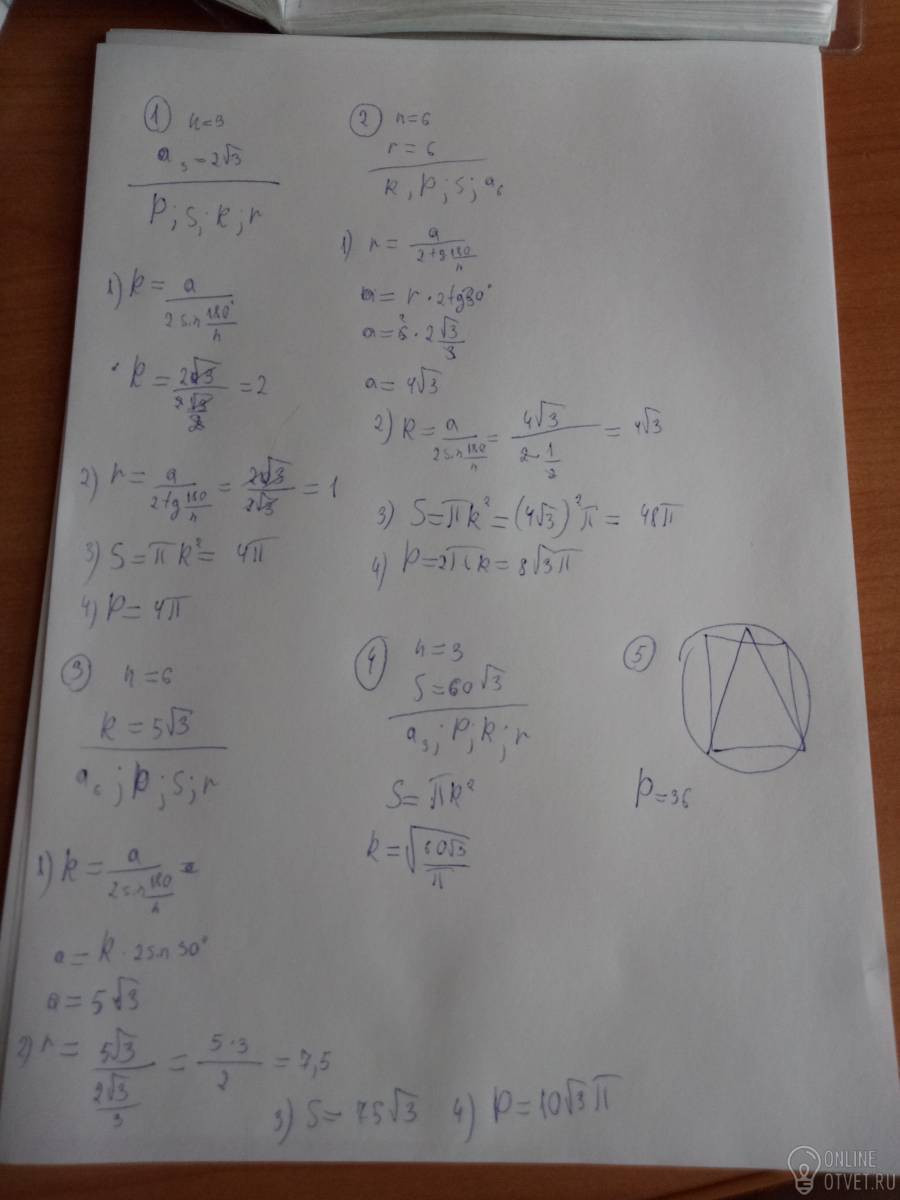 ① n=3
a₃=2√3
P; S; R; r
1) R = a / (2sin 180°/n)
R = 2√3 / (2 √3/2) = 2
2) r = a / (2tg 180/n) = 2√3 / 2√3 = 1
3) S=πR² = 4π
4) P= 4π
② n=6
r=6
R, P; S; a₆
1) r= a / (2tg 180/n)
a= r·2tg30°
a= 6·2 √3/3
a= 4√3
2) R= a / (2sin 180/n) = 4√3 / (2·1/2) = 4√3
3) S=πR²=(4√3)²π= 48π
4) P=2πR=8√3π
③ n=6
R=5√3
a₆; P; S; r
1) R= a / (2sin 180/n) =
a= R·2sin30°
a= 5√3
2) r= 5√3 / (2√3/3) = 5·3 / 2 = 7,5
3) S= 75√3 4) P=10√3π
④ n=3
S=60√3
a₃; P; R; r
S= πR²
R= √(60√3 / π)
⑤
P=36
ONLINE
OTVET.RU